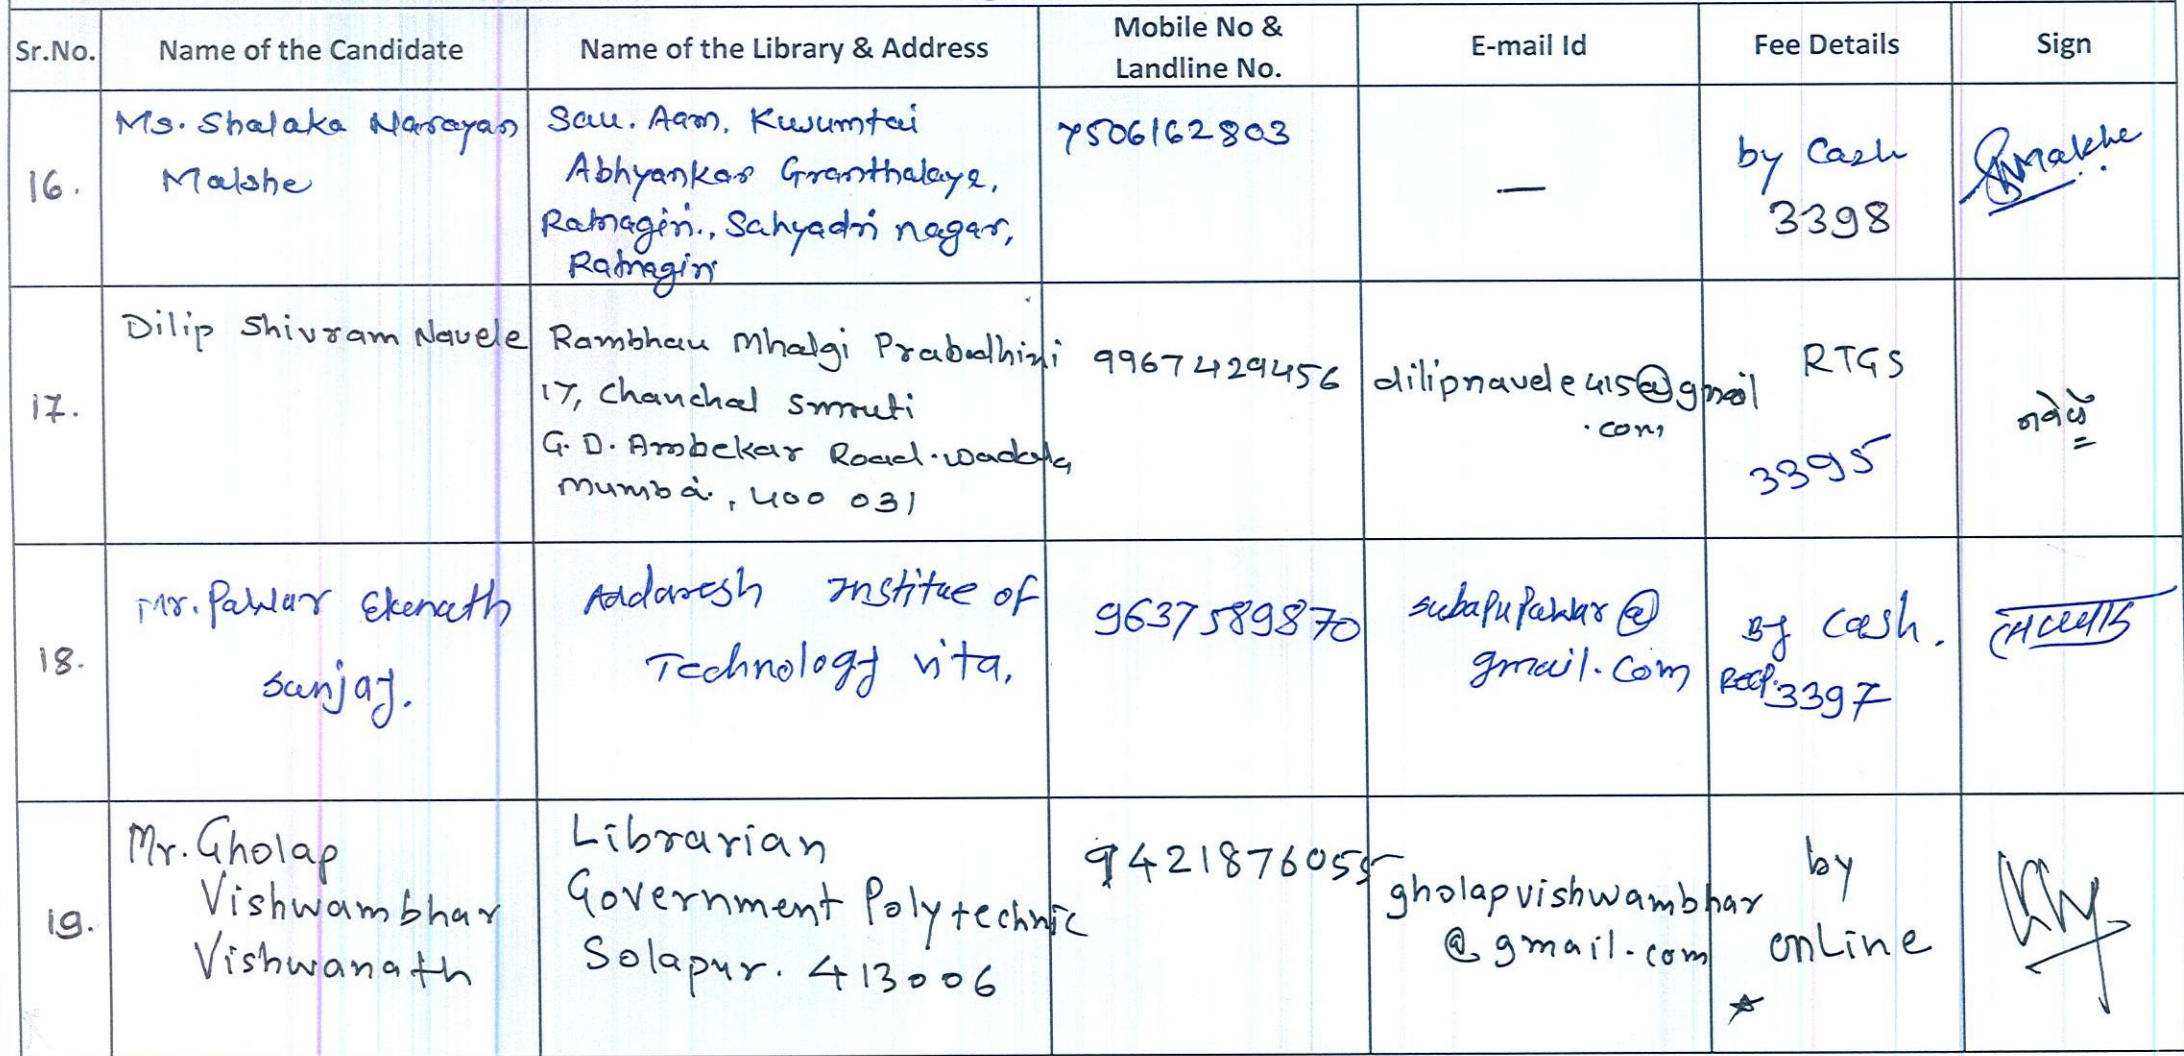 Sr.No. Name of the Candidate Name of the Library & Address Mobile No & Landline No. E-mail Id Fee Details Sign
16. Ms. Shalaka Narayan Malshe
Sau. Aam. Kusumtai
Abhyankar Granthalaye,
Ratnagiri., Sahyadri nagar,
Ratnagiri
7506162803
—
by Cash
3398
17. Dilip Shivram Navele
Rambhau Mhalgi Prabodhini
17, Chanchal Smruti
G. D. Ambekar Road. wadala
Mumbai, 400 031
9967429456
dilipnavele415@gmail
.com
RTGS
3395
18. Mr. Pawar Ekenath
Sanjay.
Aadaresh Institue of
Technology vita.
9637589870
subapupawar@
gmail.com
By Cash.
Recp. 3397
19. Mr. Gholap
Vishwambhar
Vishwanath
Librarian
Government Polytechnic
Solapur. 413006
9421876055
gholapvishwambhar
@gmail.com
by
onLine